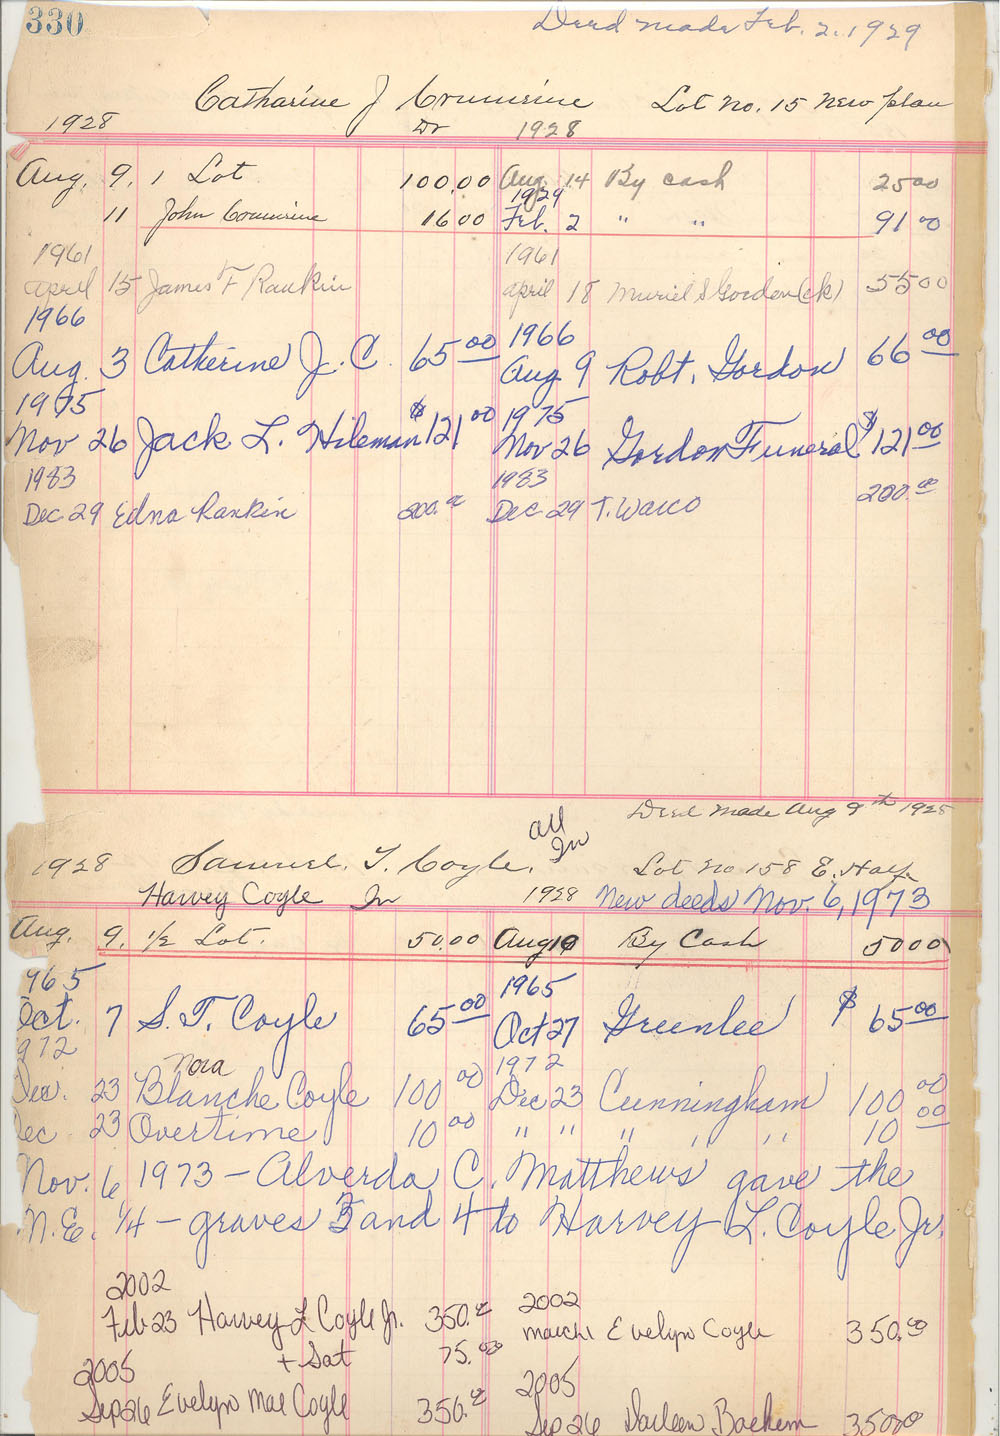 330
Deed made Feb. 2. 1929
Catharine J Lot No. 15 New plan
1928 Dr 1928
Aug. 9. 1 Lot 100.00 Aug. 14 By cash 25 00
1929
11 John 16 00 Feb. 2 " " 91 00
1961 1961
april 15 James F Rankin april 18 Muriel S Gordon (ck) 55 00
1966 1966
Aug. 3 Catherine J. C. 65 00 Aug 9 Robt. Gordon 66 00
1975 1975
Nov 26 Jack L. Hileman $121 00 Nov 26 Gordon Funeral $121 00
1983 1983
Dec 29 Edna Rankin 200. 00 Dec 29 T. Wasco 200. 00
Deed made Aug 9th 1928
all
In
1928 Samuel. T. Coyle. Lot No 158 E. Half
Harvey Coyle Jr 1928 New deeds Nov. 6, 1973
Aug. 9. 1/2 Lot. 50.00 Aug 10 By Cash 50 00
965 1965
Oct. 7 S. T. Coyle 65 00 Oct 27 Greenlee $ 65 00
972 Nora 1972
Dec. 23 Blanche Coyle 100 00 Dec 23 Cunningham 100 00
Dec 23 Overtime 10 00 " " " " " 10 00
Nov. 6 1973 - Alverda C. Matthews gave the
N.E. 1/4 - graves 3 and 4 to Harvey L. Coyle Jr.
2002 2002
Feb 23 Harvey L Coyle Jr. 350. 00 March 1 Evelyn Coyle 350. 00
+ Sat 75. 00
2005 2005
Sep 26 Evelyn Mae Coyle 350. 00 Sep 26 Darleen 350.00